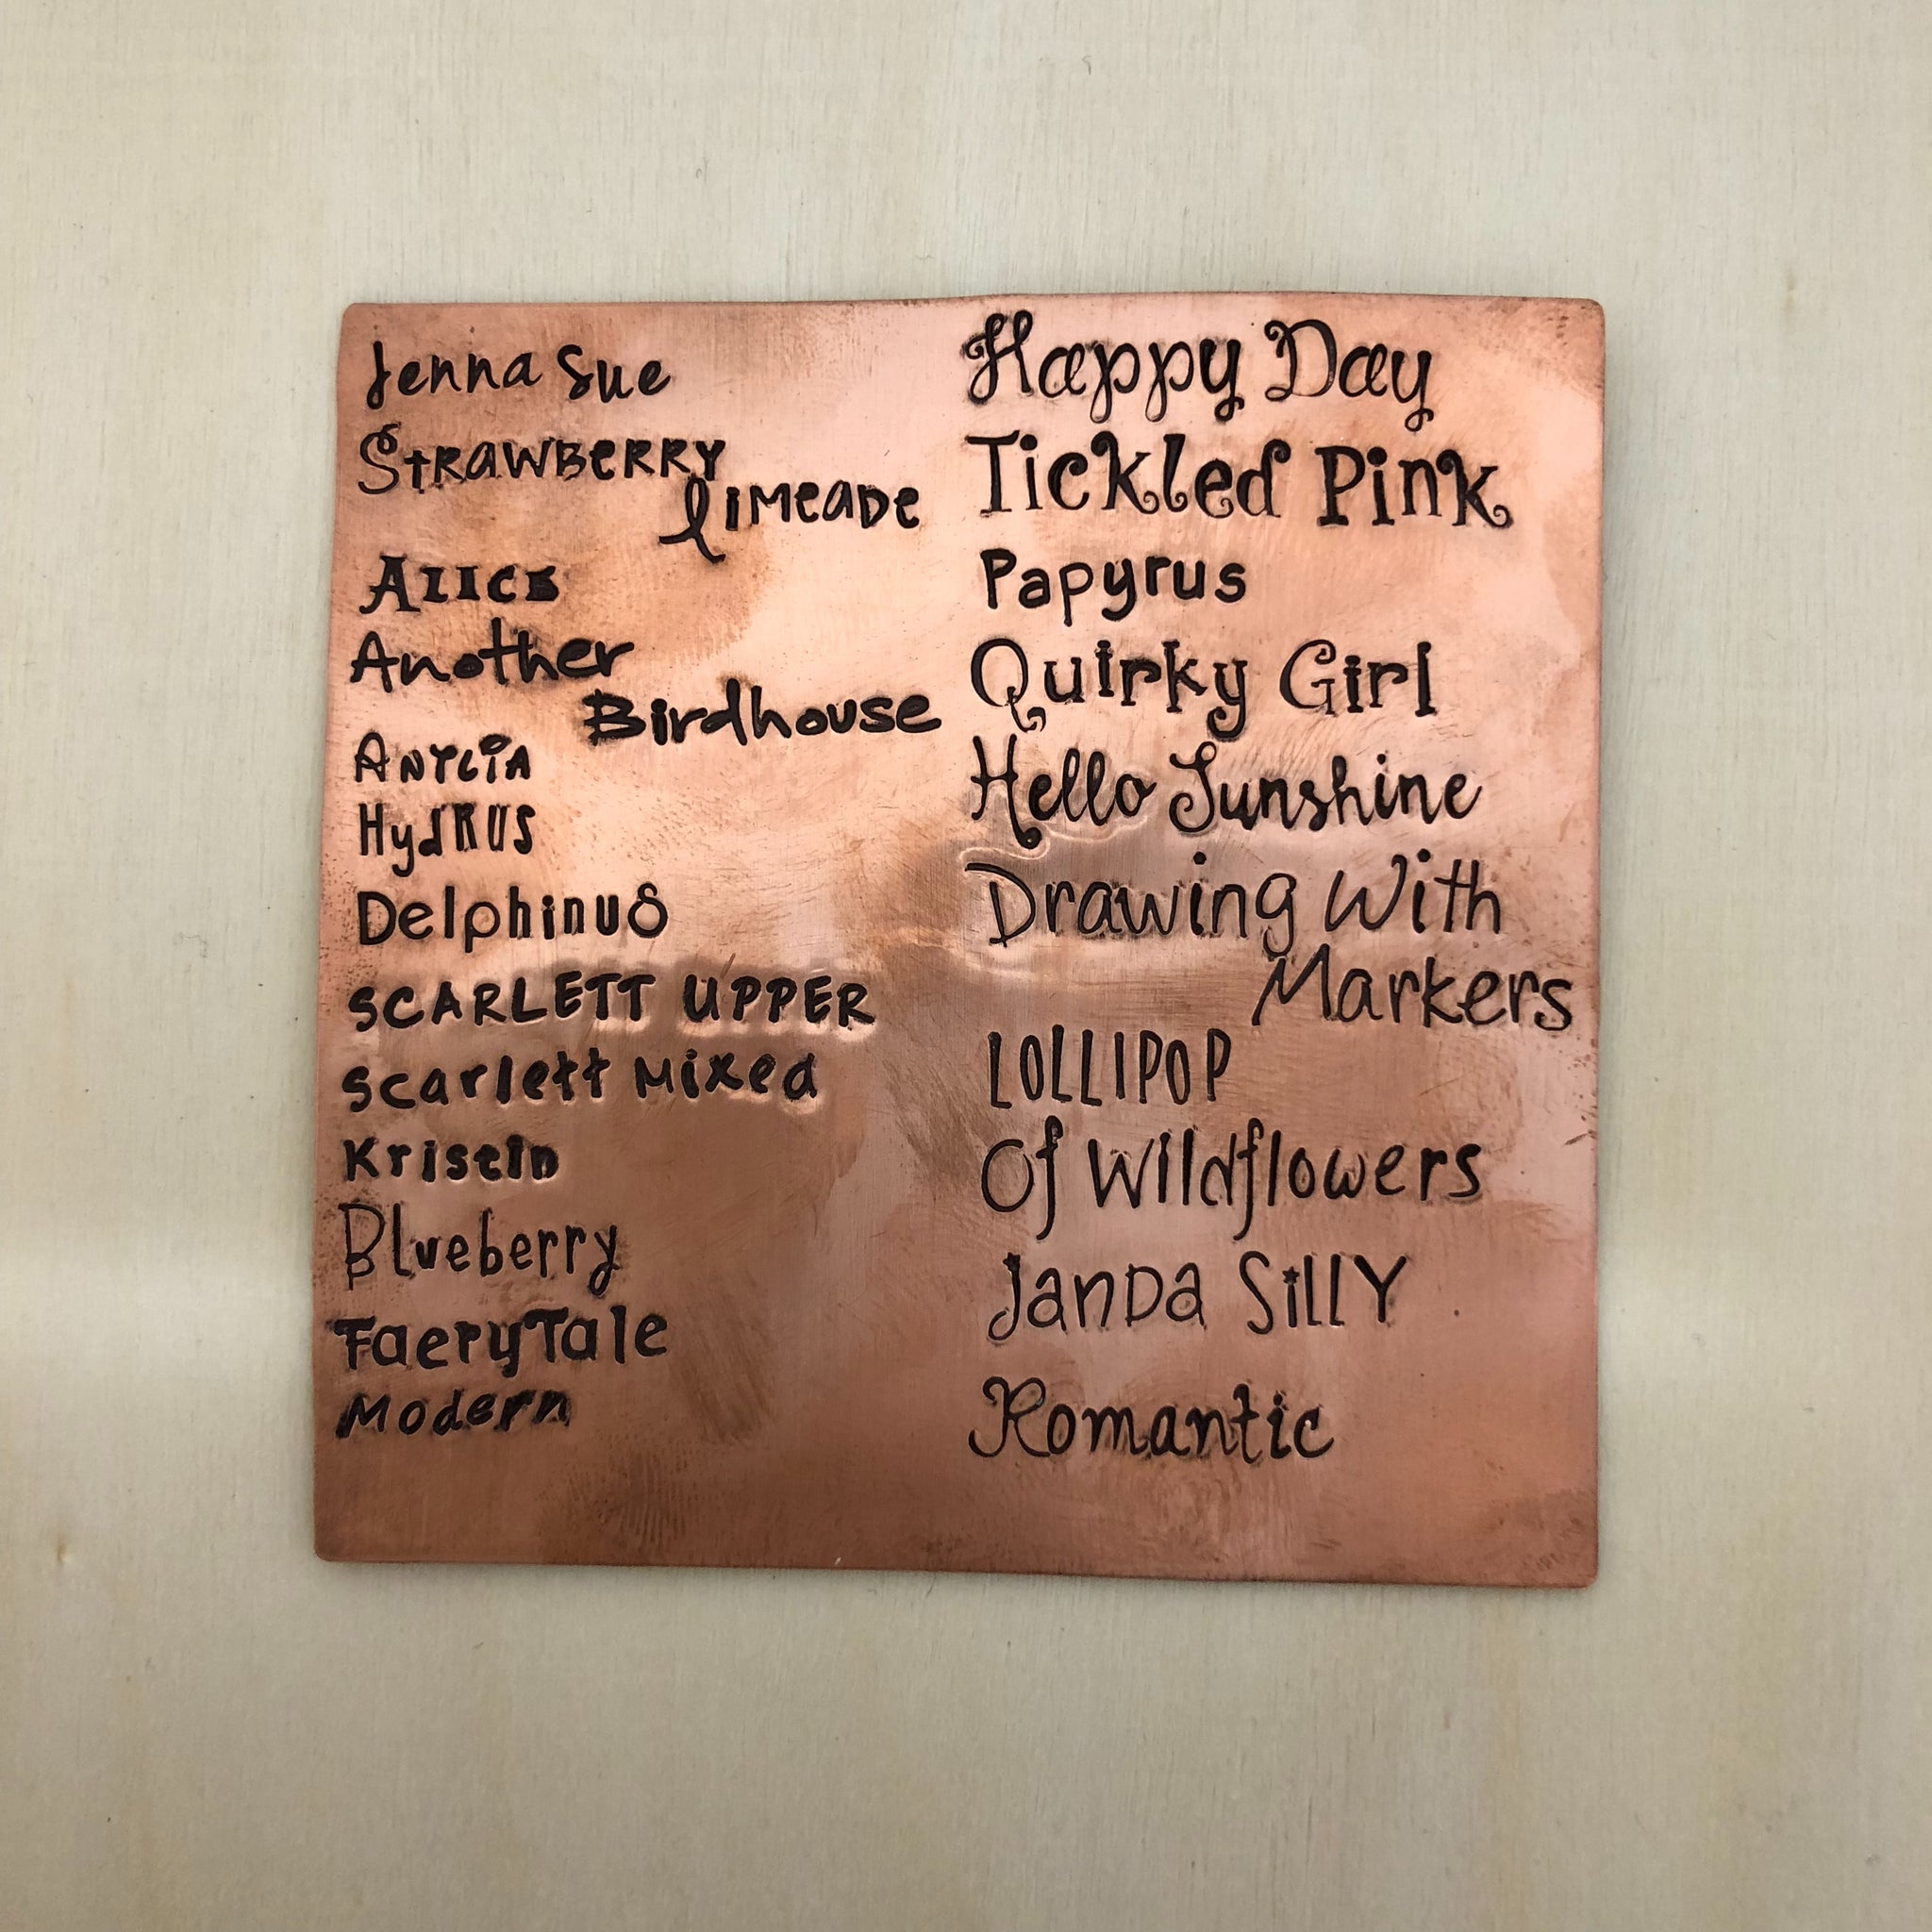 Jenna Sue
Strawberry
Limeade
Alice
Another
Birdhouse
Antlia
Hydrus
Delphinus
SCARLETT UPPER
Scarlett Mixed
Kristin
Blueberry
FaeryTale
Modern
Happy Day
Tickled Pink
Papyrus
Quirky Girl
Hello Sunshine
Drawing With
Markers
LOLLIPOP
Of Wildflowers
Janda Silly
Romantic